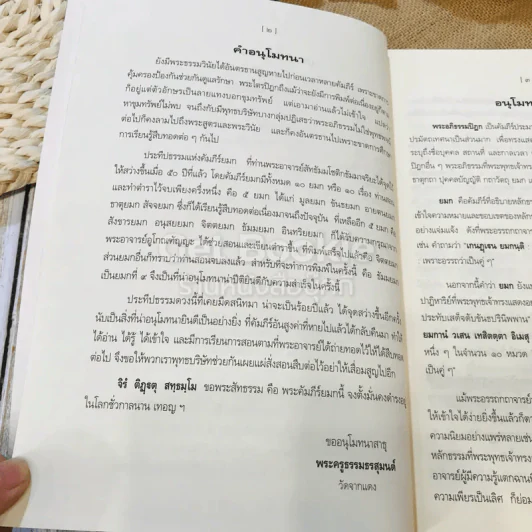 [ ๒ ]
คำอนุโมทนา
ยังมีพระธรรมวินัยได้อันตรธานสูญหายไปก่อนเวลาหลายคัมภีร์ เพราะขาดการ
คุ้มครองป้องกันช่วยกันดูแลรักษา พระไตรปิฎกถึงแม้ว่าจะยังมีการพิมพ์ต่อเนื่องอยู่ก็ตาม
ก็อยู่แต่ตัวอักษรเป็นลายแทงบอกขุมทรัพย์ แต่เอามาอ่านแล้วไม่เข้าใจ
หาขุมทรัพย์ไม่พบ จนถึงกับมีพุทธบริษัทบางกลุ่มปฏิเสธว่าพระอภิธรรมไม่ใช่พุทธพจน์
ต่อไปก็คงลามไปถึงพระสูตรและพระวินัย และก็คงอันตรธานไปเพราะขาดการศึกษา
การเรียนรู้สืบทอดต่อ ๆ กันไป
ประทีปธรรมแห่งคัมภีร์ยมก ที่ท่านพระอาจารย์สัทธัมมโชติกธัมมาจริยะได้จุด
ให้สว่างขึ้นเมื่อ ๕๐ ปีที่แล้ว โดยคัมภีร์ยมกมีทั้งหมด ๑๐ ยมก หรือ ๑๐ เรื่อง ท่านสอน
และทำตำราไว้จบเพียงครึ่งหนึ่ง คือ ๕ ยมก ได้แก่ มูลยมก ขันธยมก อายตนยมก
ธาตุยมก สัจจยมก ซึ่งก็ได้เรียนรู้สืบทอดต่อเนื่องมาจนถึงปัจจุบัน ที่เหลืออีก ๕ ยมก คือ
สังขารยมก อนุสยยมก จิตตยมก ธัมมยมก อินทริยยมก ก็ได้รับความกรุณาจาก
พระอาจารย์อูโกณฑัญญะ ได้ช่วยสอนและเขียนตำราขึ้น ที่พิมพ์เสร็จไปแล้วคือ จิตตยมก
ส่วนยมกอื่นก็ทราบว่าท่านสอนจบลงแล้ว สำหรับที่จะทำการพิมพ์ในครั้งนี้ คือ ธัมมยมก
เป็นยมกที่ ๙ จึงเป็นที่น่าอนุโมทนาน่าปีติยินดีกับความสำเร็จในครั้งนี้
ประทีปธรรมดวงนี้ที่เคยมืดสนิทมา น่าจะเป็นร้อยปีแล้ว ได้จุดสว่างขึ้นอีกครั้ง
นับเป็นสิ่งที่น่าอนุโมทนายินดีเป็นอย่างยิ่ง ที่คัมภีร์อันสูงค่าที่หายไปแล้วได้กลับคืนมา ทำให้
ได้อ่าน ได้รู้ ได้เข้าใจ และมีการเรียนการสอนตามที่พระอาจารย์ได้ถ่ายทอดไว้ให้ได้สืบทอด
ต่อไป จึงขอให้พวกเราพุทธบริษัทช่วยกันเผยแผ่สั่งสอนสืบต่อไว้อย่าให้เสื่อมสูญไปอีก
จิรํ ติฏฺฐตุ สทฺธมฺโม ขอพระสัทธรรม คือ พระคัมภีร์ยมกนี้ จงตั้งมั่นคงดำรงอยู่
ในโลกชั่วกาลนาน เทอญ ฯ
ขออนุโมทนาสาธุ
พระครูธรรมธรสุมนต์
วัดจากแดง
[ ๓
อนุโมท
พระอภิธรรมปิฎก เป็นคัมภีร์ประมว
ปรมัตถเทศนาเป็นส่วนมาก เพื่อทรงแส
ระบุถึงชื่อบุคคล สถานที่ และกาลเวลา
ปิฎกอื่น ๆ พระอภิธรรมที่พระพุทธเจ้าทร
ธาตุกถา ปุคคลบัญญัติ กถาวัตถุ ยมก
ยมก คือคัมภีร์ที่อธิบายหลักธร
เข้าใจความหมายและขอบเขตของหลักธ
อย่างแจ่มแจ้ง ดังที่พระอรรถกถาจารย์
เช่น คำถามว่า "เกนฏฺเฐน ยมกนฺติ
เพราะอรรถว่าเป็นคู่ ๆ"
นอกจากนี้คำว่า ยมก ยัง
ปาฏิหาริย์ที่พระพุทธเจ้าทรงแสดงยม
ที่พระองค์ประทับดับขันธปรินิพพาน"
ยมกานํ วเสน เทสิตตฺตา อิเมสุ
หนึ่ง ๆ ในจำนวน ๑๐ หมวด
เป็นคู่ ๆ"
แม้พระอรรถกถาจารย์
ให้เข้าใจได้ง่ายยิ่งขึ้นแล้วก็ตา
ความนิยมอย่างแพร่หลายเช่น
หลักธรรมที่พระพุทธเจ้าทรง
อาจารย์ผู้มีความรู้แตกฉานใ
ความเพียรเป็นเลิศ ก็ย่อม